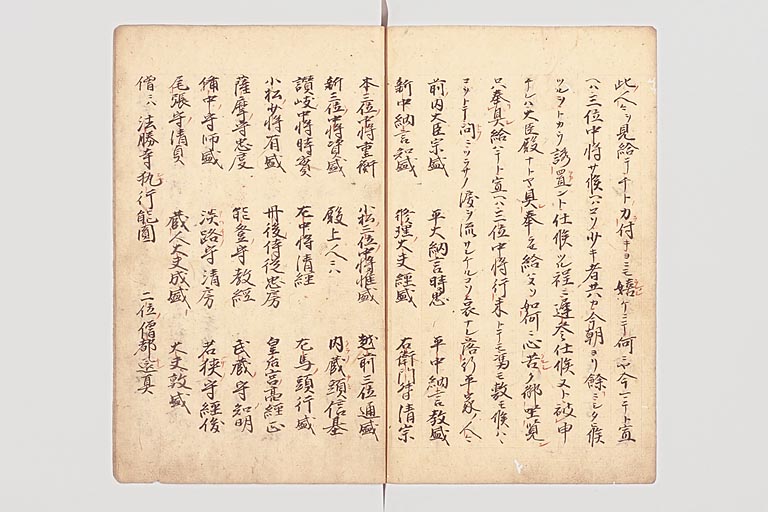 此人々ヲ見給テコソトカ付キヨニモ嬉ケニテ何ニヤ今マテト宣
ヘハ三位中将サ候ヘハコソ少キ者共カ今朝ヨリ餘ニシタヒ候
ツルヲトカク誘置ント仕候ツル程ニ遅参仕候ヌト被申
ケレハ大臣殿ナトヤ具奉セ給ハヌソ如何ニ心苦ク御坐覧
只奉具給ヘテト宣ヘハ三位中将行末トテモ憑モ敷モ候ハス
トテ問ニツラサノ涙ヲ流シケルコソ哀ナレ落行平家ノ人々ニハ
前内大臣宗盛 平大納言時忠 平中納言教盛
新中納言知盛 修理大夫經盛 右衛門督清宗
本三位中将重衡 小松三位中将惟盛 越前三位通盛
新三位中将資盛 殿上人ニハ 内蔵頭信基
讃岐中将時實 左中将清經 左馬頭行盛
小松少将有盛 丹後侍従忠房 皇后宮亮經正
薩摩守忠度 能登守教經 武蔵守知明
備中守師盛 淡路守清房 若狭守經俊
尾張守清貞 蔵人大夫成盛 大夫敦盛
僧ニハ法勝寺執行能圓 二位僧都全真